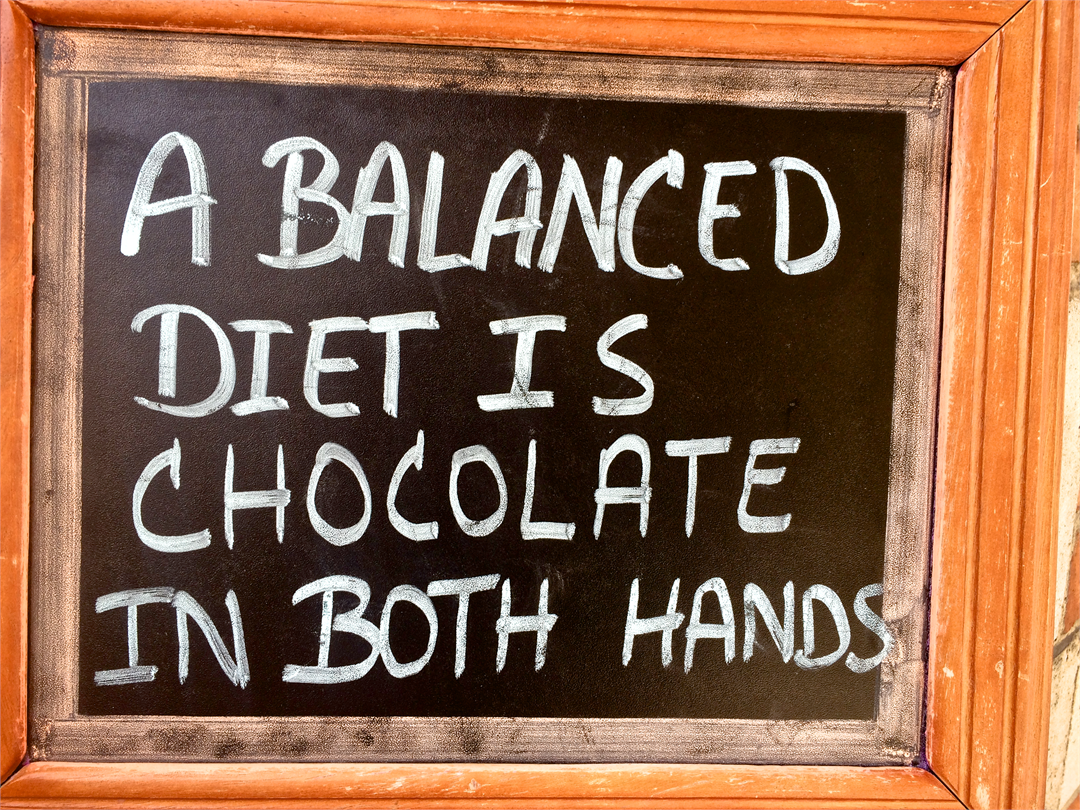 A BALANCED
DIET IS
CHOCOLATE
IN BOTH HANDS